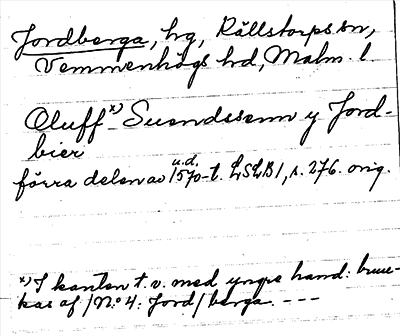 Jordberga, hg, Källstorps sn,
Vemmenhögs hd, Malm. l
Oluff *) Suendssenn y Jord-
bier
u.d.
förra delen av 1570-t. LSLB 1, s. 276. orig.
*) I kanten t. v. med yngre hand: bruu-
kas af / N:o 4: Jord / berga. ---